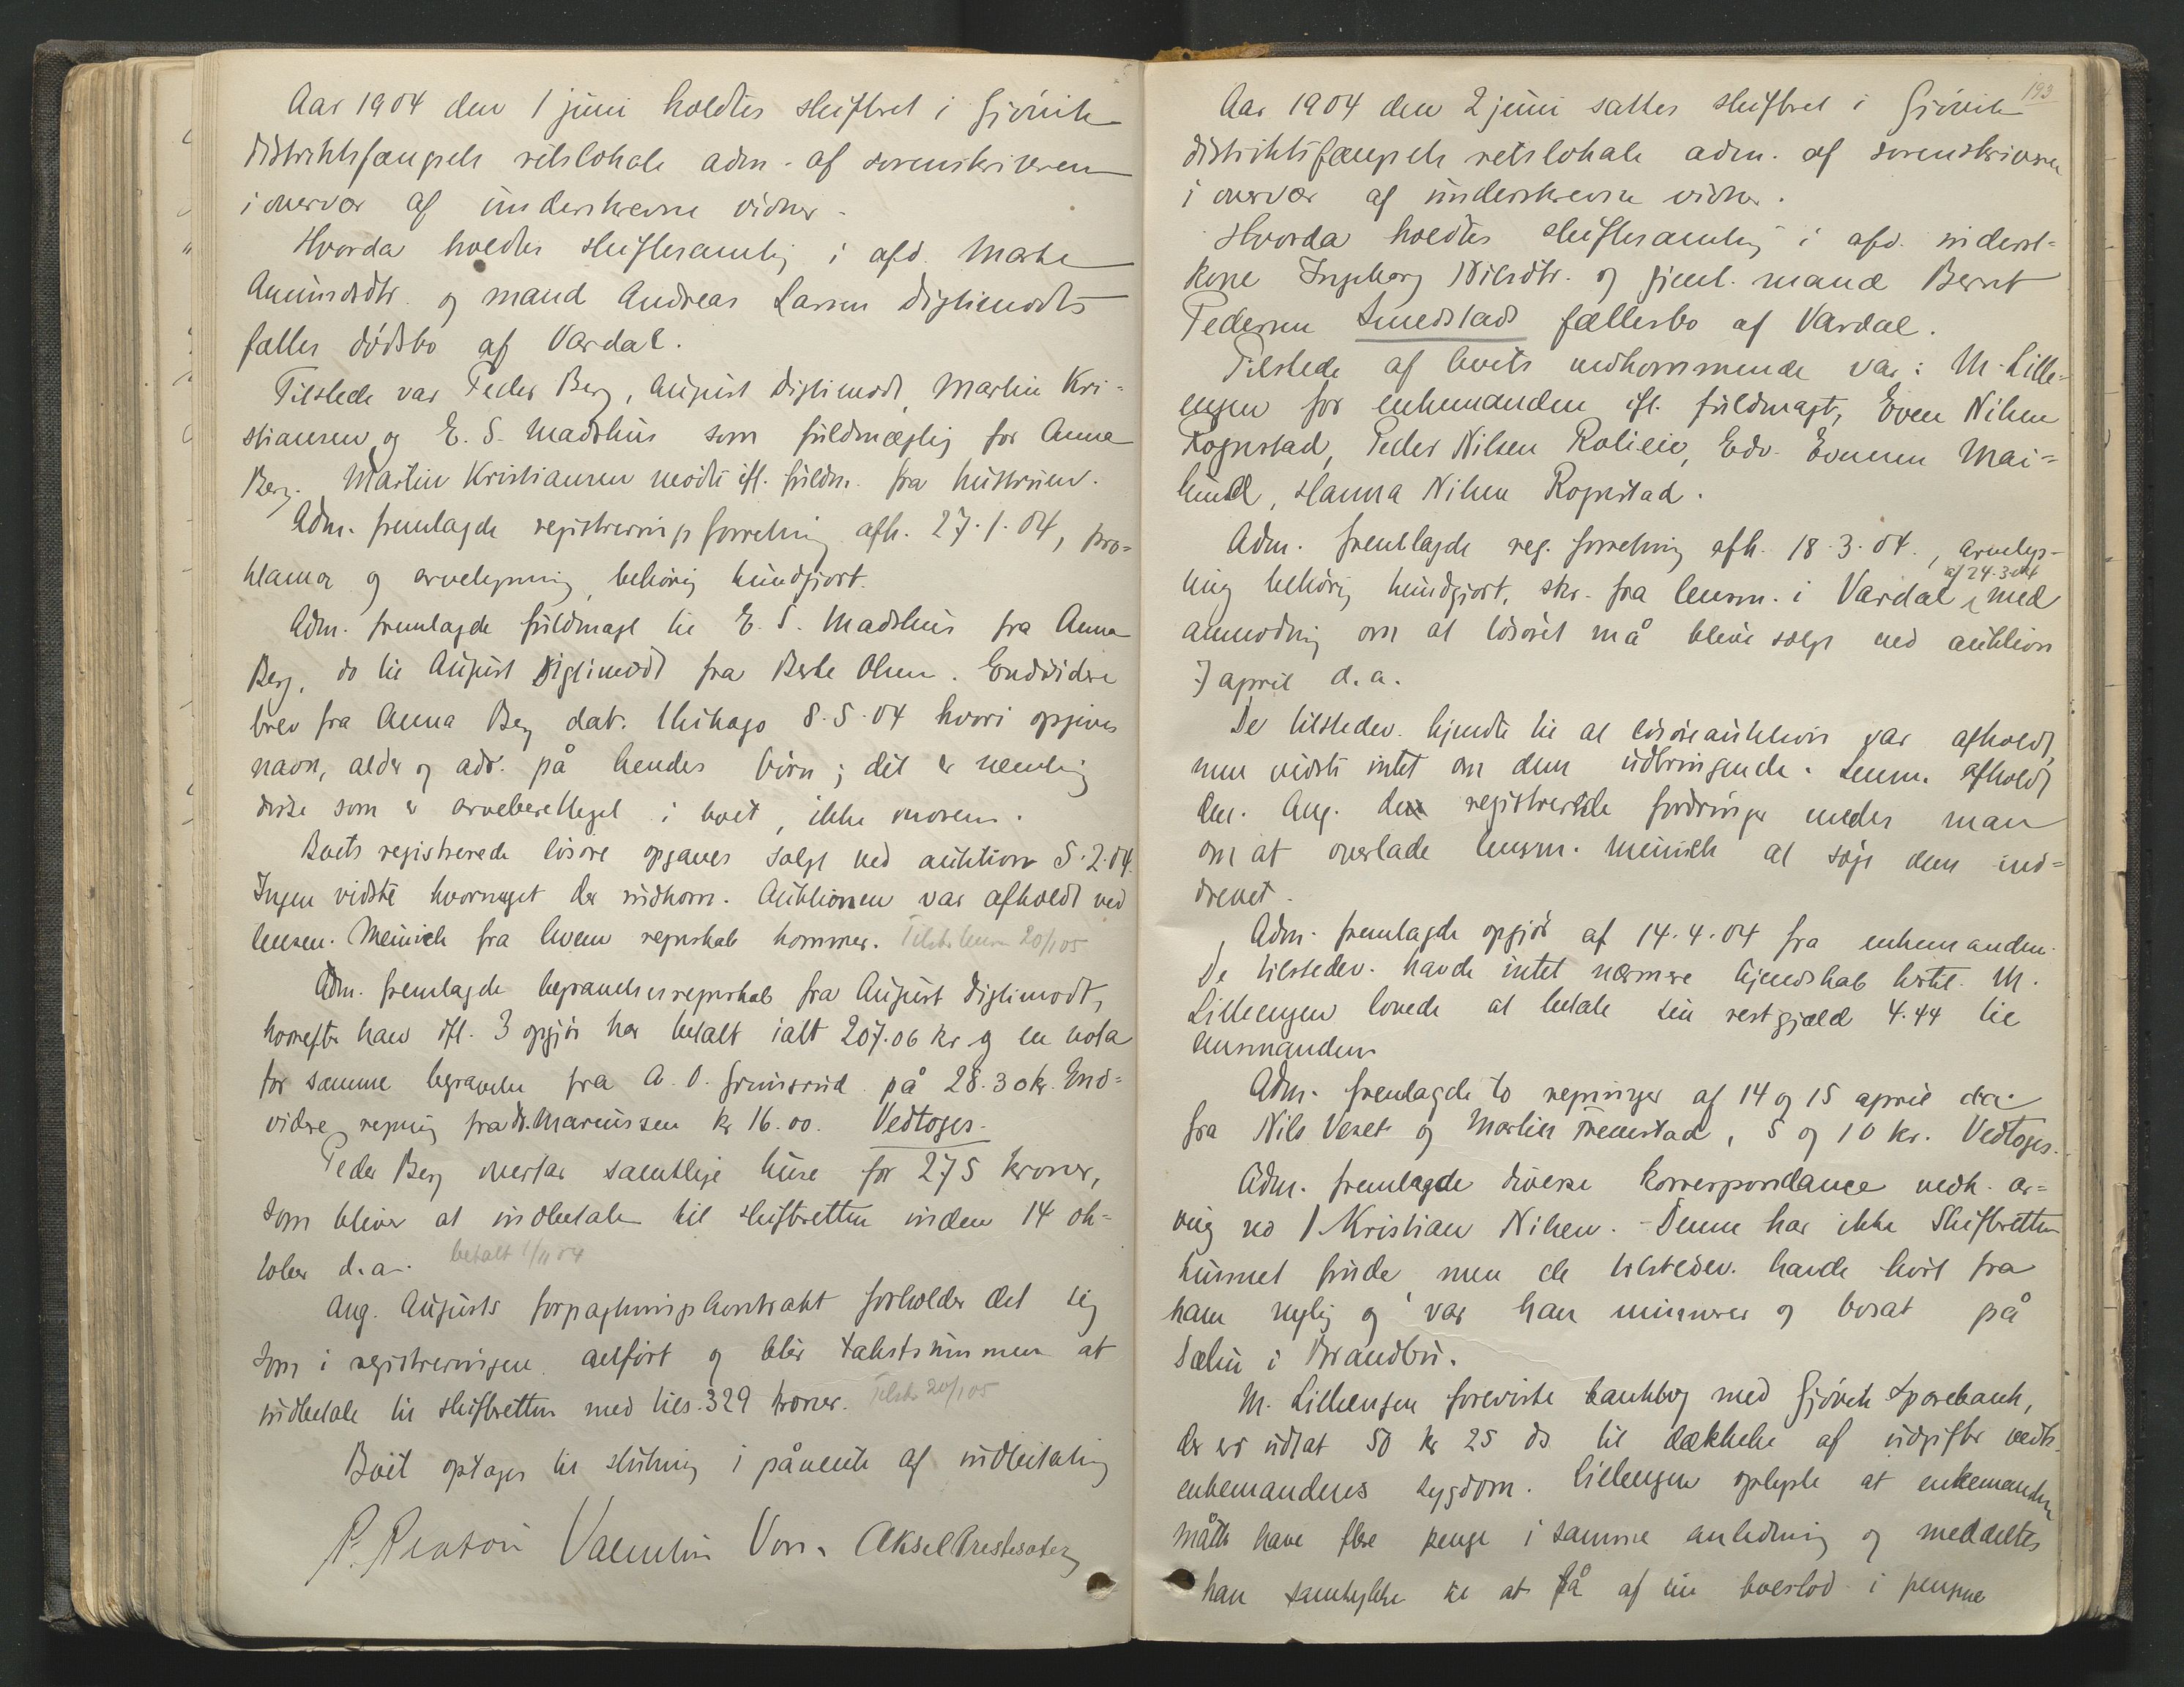 Aar 1904 den 1 juni holdtes skifteret i Gjøvik
distriktsfængsels retslokale adm. af sorenskriveren
i overvær af underskrevne vidner.
Hvorda holdtes skiftesamling i afd. Marte
Amundsdtr. og mand Andreas Larsen Diglimodts
fælles dødsbo af Vardal.
Tilstede var Peder Berg, August Diglimodt, Martin Kri=
stiansen og E. S. Madshus som fuldmægtig for Anna
Berg. Martin Kristiansen mødte ifl. fuldm. fra hustruen.
Adm. fremlagde registreringsforretning afh. 27.1.04, pro=
klama og arvelysning, behørig kundgjort.
Adm. fremlagde fuldmagt til E. S. Madshus fra Anna
Berg, do til August Diglimodt fra Berte Olsen. Endvidere
brev fra Anna Berg dat. Chikago 8.5.04 hvori opgives
navn, alder og adr. på hendes børn; det er nemlig
disse som er arveberettiget i boet, ikke moren.
Boets registrerede løsøre opgaves solgt ved auktion 5.2.04.
Ingen vidste hvormeget der indkom. Auktionen var afholdt ved
lensm. Meinich fra hvem regnskab kommer. Tilsk. lensm 20/1 05
Adm. fremlagde begravelsesregnskab fra August Diglimodt,
hvorefter han ifl. 3 opgjør har betalt ialt 207.06 kr og en nota
for samme begravelse fra A. O. Grimsrud på 28.30 kr. End=
videre regning fra dr. Mariussen kr 16.00. Vedtoges.
Peder Berg overtar samtlige huse for 275 kroner,
som bliver at indbetale til skifteretten inden 14 ok=
tober d.a. betalt 1/11 04
Ang. Augusts forpagtningskontrakt forholder det sig
som i registreringen anført og blir takstsummen at
indbetale til skifteretten med tils. 329 kroner. Tilsk. 20/1 05
Boet optages til slutning i påvente af indbetaling
Valentin Aksel Prestesæter
193
Aar 1904 den 2 juni sattes skifteret i Gjøvik
distriktsfængsels retslokale adm. af sorenskriveren
i overvær af underskrevne vidner.
Hvorda holdtes skiftesamling i afd. inderst=
kone Ingeborg Nilsdtr. og gjenl. mand Bernt
Pedersen Smedstads fællesbo af Vardal.
Tilstede af boets vedkommende var: M. Lille=
engen for enkemanden ifl. fuldmagt, Even Nilsen
Rognstad, Peder Nilsen Rolieie, Edv. Evensen Mai=
lund, Hanna Nilsen Rognstad.
Adm. fremlagde reg. forretning afh. 18.3.04., arvelys=
ning behørig kundgjort, skr. fra lensm. i Vardal af 24.3.04 med
anmodning om at løsøret må blive solgt ved auktion
7 april d.a.
De tilstedev. kjendte til at løsøreauktion var afholdt,
men vidste intet om dens udbringende. Lensm. afholdt
den. Ang. de registrerede fordringer enedes man
om at overlade lensm. Meinich at søge dem ind=
drevet.
Adm. fremlagde opgjør af 14.4.04 fra enkemanden.
De tilstedev. havde intet nærmere kjendskab hertil. M.
Lilleengen lovede at betale sin restgjæld 4.44 til
lensmanden.
Adm. fremlagde to regninger af 14 og 15 april d.a.
fra Nils Veset og Martin Tremstad, 5 og 10 kr. Vedtoges.
Adm. fremlagde diverse korrespondance vedk. ar=
ving no 1 Kristian Nilsen. - Denne har ikke Skifteretten
kunnet finde men de tilstedev. havde hørt fra
ham nylig og var han minører og bosat på
Sølin i Brandbu.
M. Lilleengen foreviste bankbog med Gjøvik Sparebank,
der er udtat 50 kr 25 ds til dækkelse af udgifter vedk.
enkemandens sygdom. Lilleengen oplyste at enkemanden
måtte have flere penge i samme anledning og meddeltes
han samtykke til at få af sin boeslod i pengene